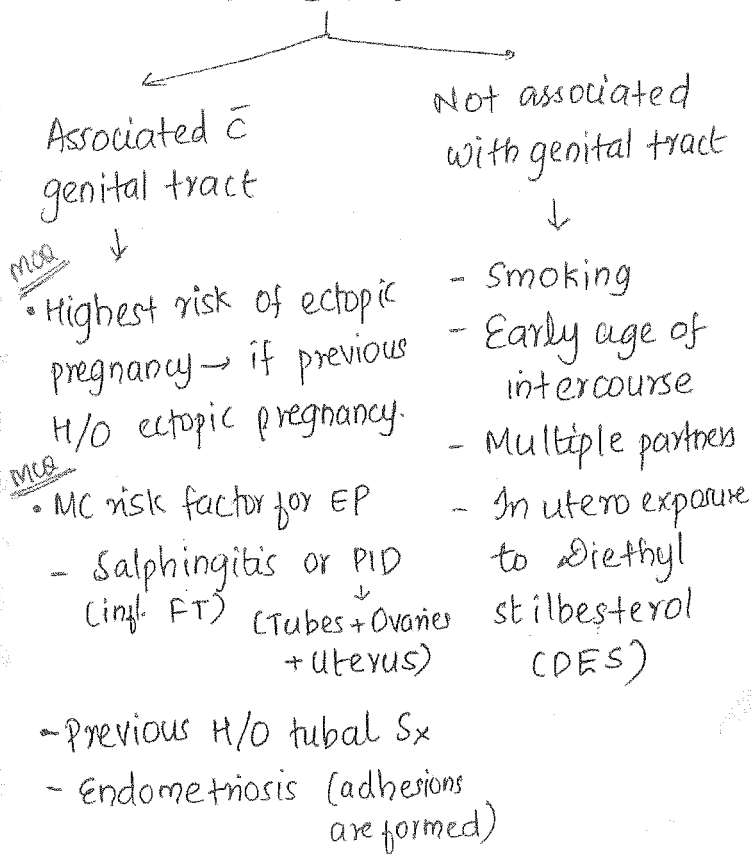 Associated c̄
genital tract
↓
MCQ
• Highest risk of ectopic
pregnancy → if previous
H/O ectopic pregnancy.
MCQ
• MC risk factor for EP
- Salphingitis or PID
(infl. FT) ↓
(Tubes + Ovaries
+ Uterus)
- Previous H/O tubal Sx
- Endometriosis (adhesions
are formed)
Not associated
with genital tract
↓
- Smoking
- Early age of
intercourse
- Multiple partners
- In utero exposure
to Diethyl
stilbesterol
(DES)